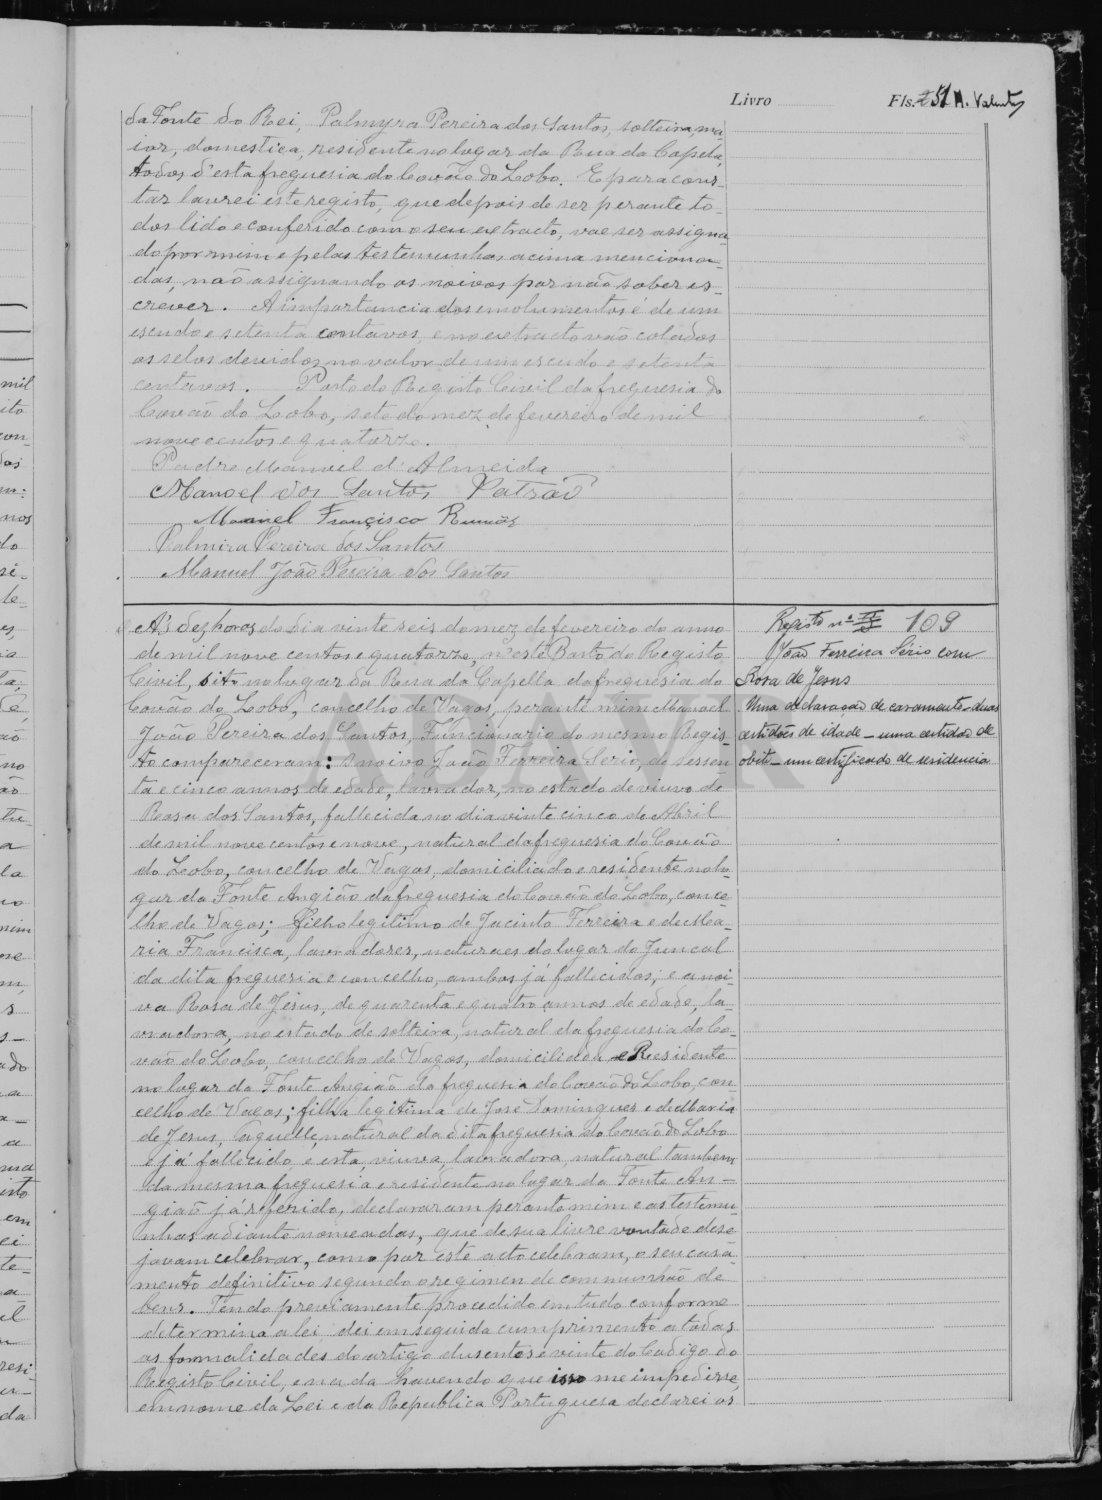 Livro
Fls. 51 M. Valente
da Fonte do Rei, Palmyra Pereira dos Santos, solteira, ma-
ior, domestica, residente no lugar da Rua da Capela,
todos d'esta freguesia do Covão do Lobo. E para cons-
tar lavrei este registo, que depois de ser perante to-
dos lido e conferido com o seu extracto, vae ser assigna-
do por mim e pelas testemunhas acima menciona-
das, não assignando os noivos por não saber es-
crever. A importancia dos emolumentos é de um
escudo e setenta centavos, e no extracto vão colados
os selos devidos no valor de um escudo e setenta
centavos. Posto do Registo Civil da freguesia do
Covão do Lobo, sete do mez de fevereiro de mil
nove centos e quatorze.
Padre Manuel d'Almeida
Manoel dos Santos Patrão
Manuel Francisco
Palmira Pereira dos Santos
Manuel João Pereira dos Santos
A's dez horas do dia vinte seis do mez de fevereiro do anno
de mil nove centos e quatorze, n'este Posto do Registo
Civil, sito no lugar da Rua da Capella da freguesia do
Covão do Lobo, concelho de Vagos, perante mim Manoel
João Pereira dos Santos, Funcionario do mesmo Regis-
to compareceram: o noivo João Ferreira Serio, de sessen-
ta e cinco annos de edade, lavrador, no estado de viuvo de
Rosa dos Santos, fallecida no dia vinte cinco de Abril
de mil nove centos e nove, natural da freguesia do Covão
do Lobo, concelho de Vagos, domiciliado e residente no lu-
gar da Fonte Angião da freguesia do Covão do Lobo, conce-
lho de Vagos; filho legitimo de Jacinto Ferreira e de Ma-
ria Francisca, lavradores, naturaes do lugar do Juncal
da dita freguesia e concelho, ambos já fallecidos; e a noi-
va Rosa de Jesus, de quarenta e quatro annos de edade, la-
vradora, no estado de solteira, natural da freguesia do Co-
vão do Lobo, concelho de Vagos, domiciliada e Residente
no lugar da Fonte Angião da freguesia do Covão do Lobo, con-
celho de Vagos; filha legitima de José Domingues e de Maria
de Jesus, aquelle, natural da dita freguesia do Covão do Lobo
e já fallecido, e esta, viuva, lavradora, natural tambem
da mesma freguesia e residente no lugar da Fonte An-
gião já referido, declararam perante mim e as testemu-
nhas adiante nomeadas, que de sua livre vontade dese-
javam celebrar, como por este acto celebram, o seu casa-
mento definitivo segundo o regimen de communhão de
bens. Tendo previamente procedido em tudo conforme
determina a lei dei em seguida cumprimento a todas
as formalidades do artigo dusentos e vinte do Codigo do
Registo Civil, e nada havendo que isso me impedisse,
em nome da Lei e da Republica Portuguesa declarei os
Registo nº 109
João Ferreira Serio com
Rosa de Jesus
Uma declaração de casamento - duas
certidões de idade - uma certidão de
obito - um certificado de residencia
ADAVR